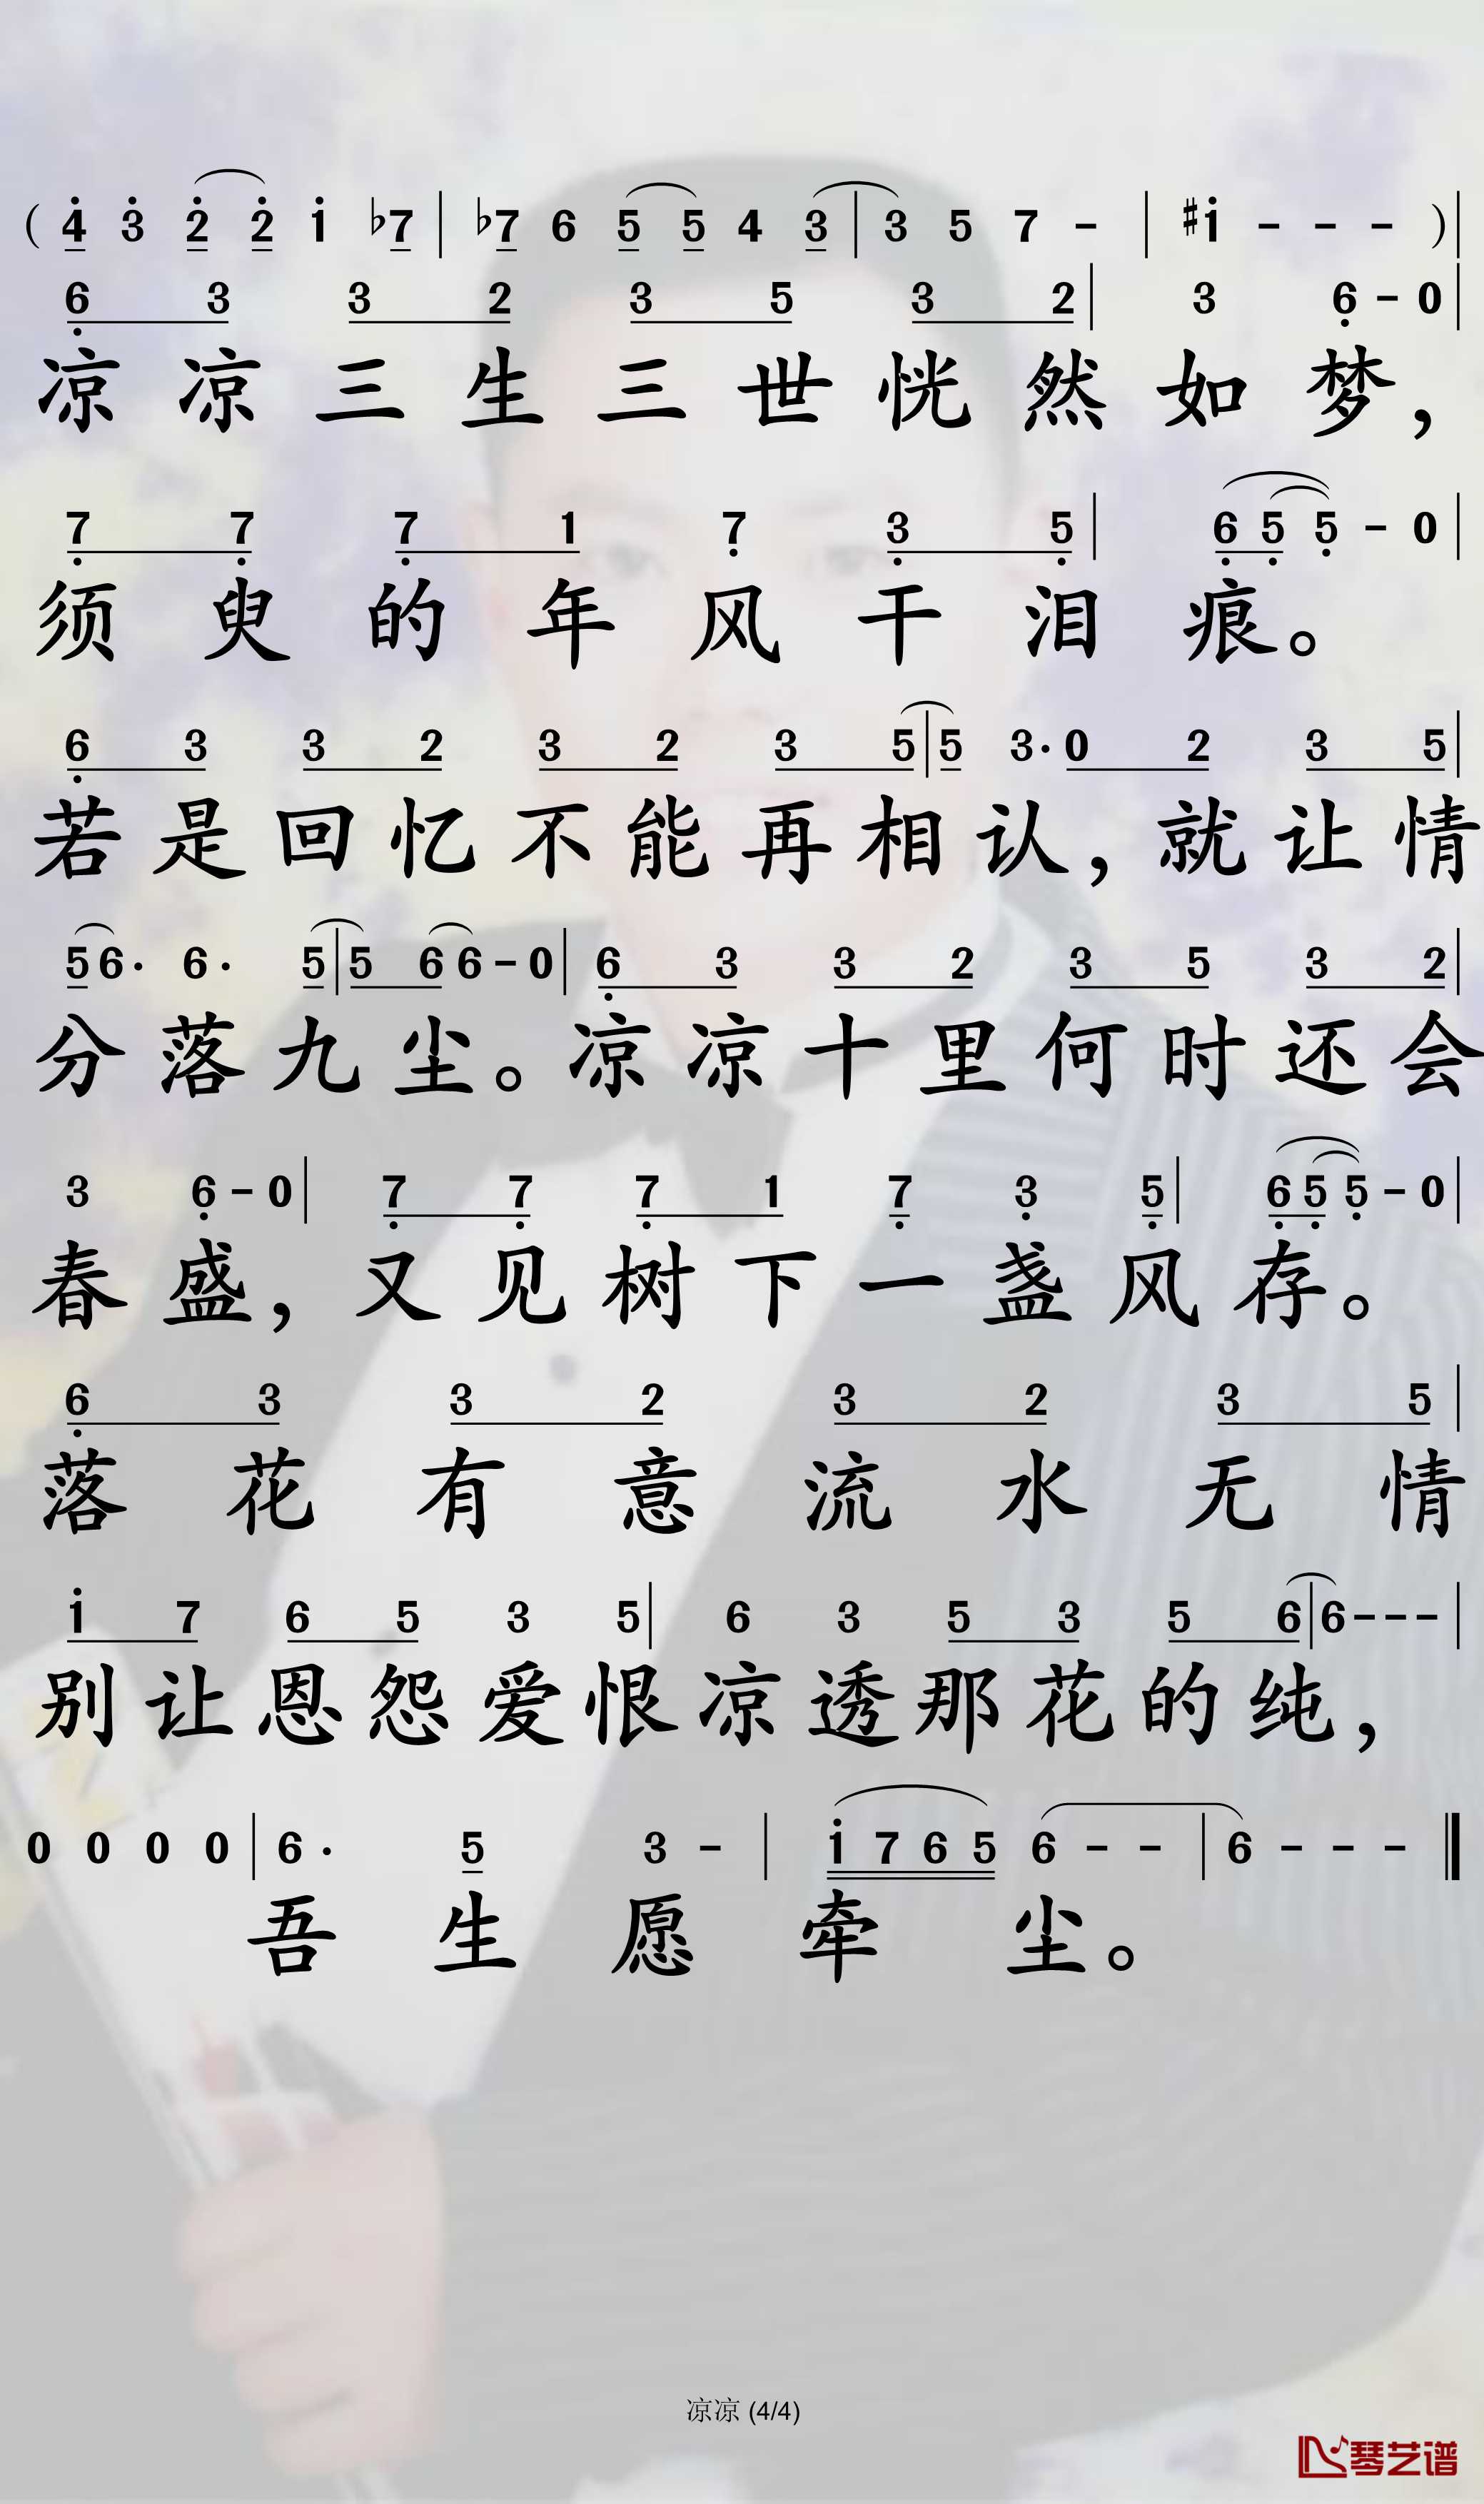 ( 4̣̇ 3̇ 2̇ 2̇ 1̇ ♭7 | ♭7 6 5 5 4 3 | 3 5 7 - | #1̇ - - - ) |
6̣ 3 3 2 3 5 3 2 | 3 6̣ - 0 |
凉凉三生三世恍然如梦，
7̣ 7̣ 7̣ 1 7̣ 3̣ 5̣ | 6̣ 5̣ 5̣ - 0 |
须臾的年风干泪痕。
6̣ 3 3 2 3 2 3 5 | 5 3· 0 2 3 5 |
若是回忆不能再相认，就让情
5 6· 6· 5 | 5 6 6 - 0 | 6̣ 3 3 2 3 5 3 2 |
分落九尘。凉凉十里何时还会
3 6̣ - 0 | 7̣ 7̣ 7̣ 1 7̣ 3̣ 5̣ | 6̣ 5̣ 5̣ - 0 |
春盛，又见树下一盏风存。
6̣ 3 3 2 3 2 3 5 |
落花有意流水无情
1̇ 7 6 5 3 5 | 6 3 5 3 5 6 | 6 - - - |
别让恩怨爱恨凉透那花的纯，
0 0 0 0 | 6· 5 3 - | 1̇ 7 6 5 6 - - | 6 - - - ‖
吾生愿牵尘。
凉凉 (4/4)
琴艺谱